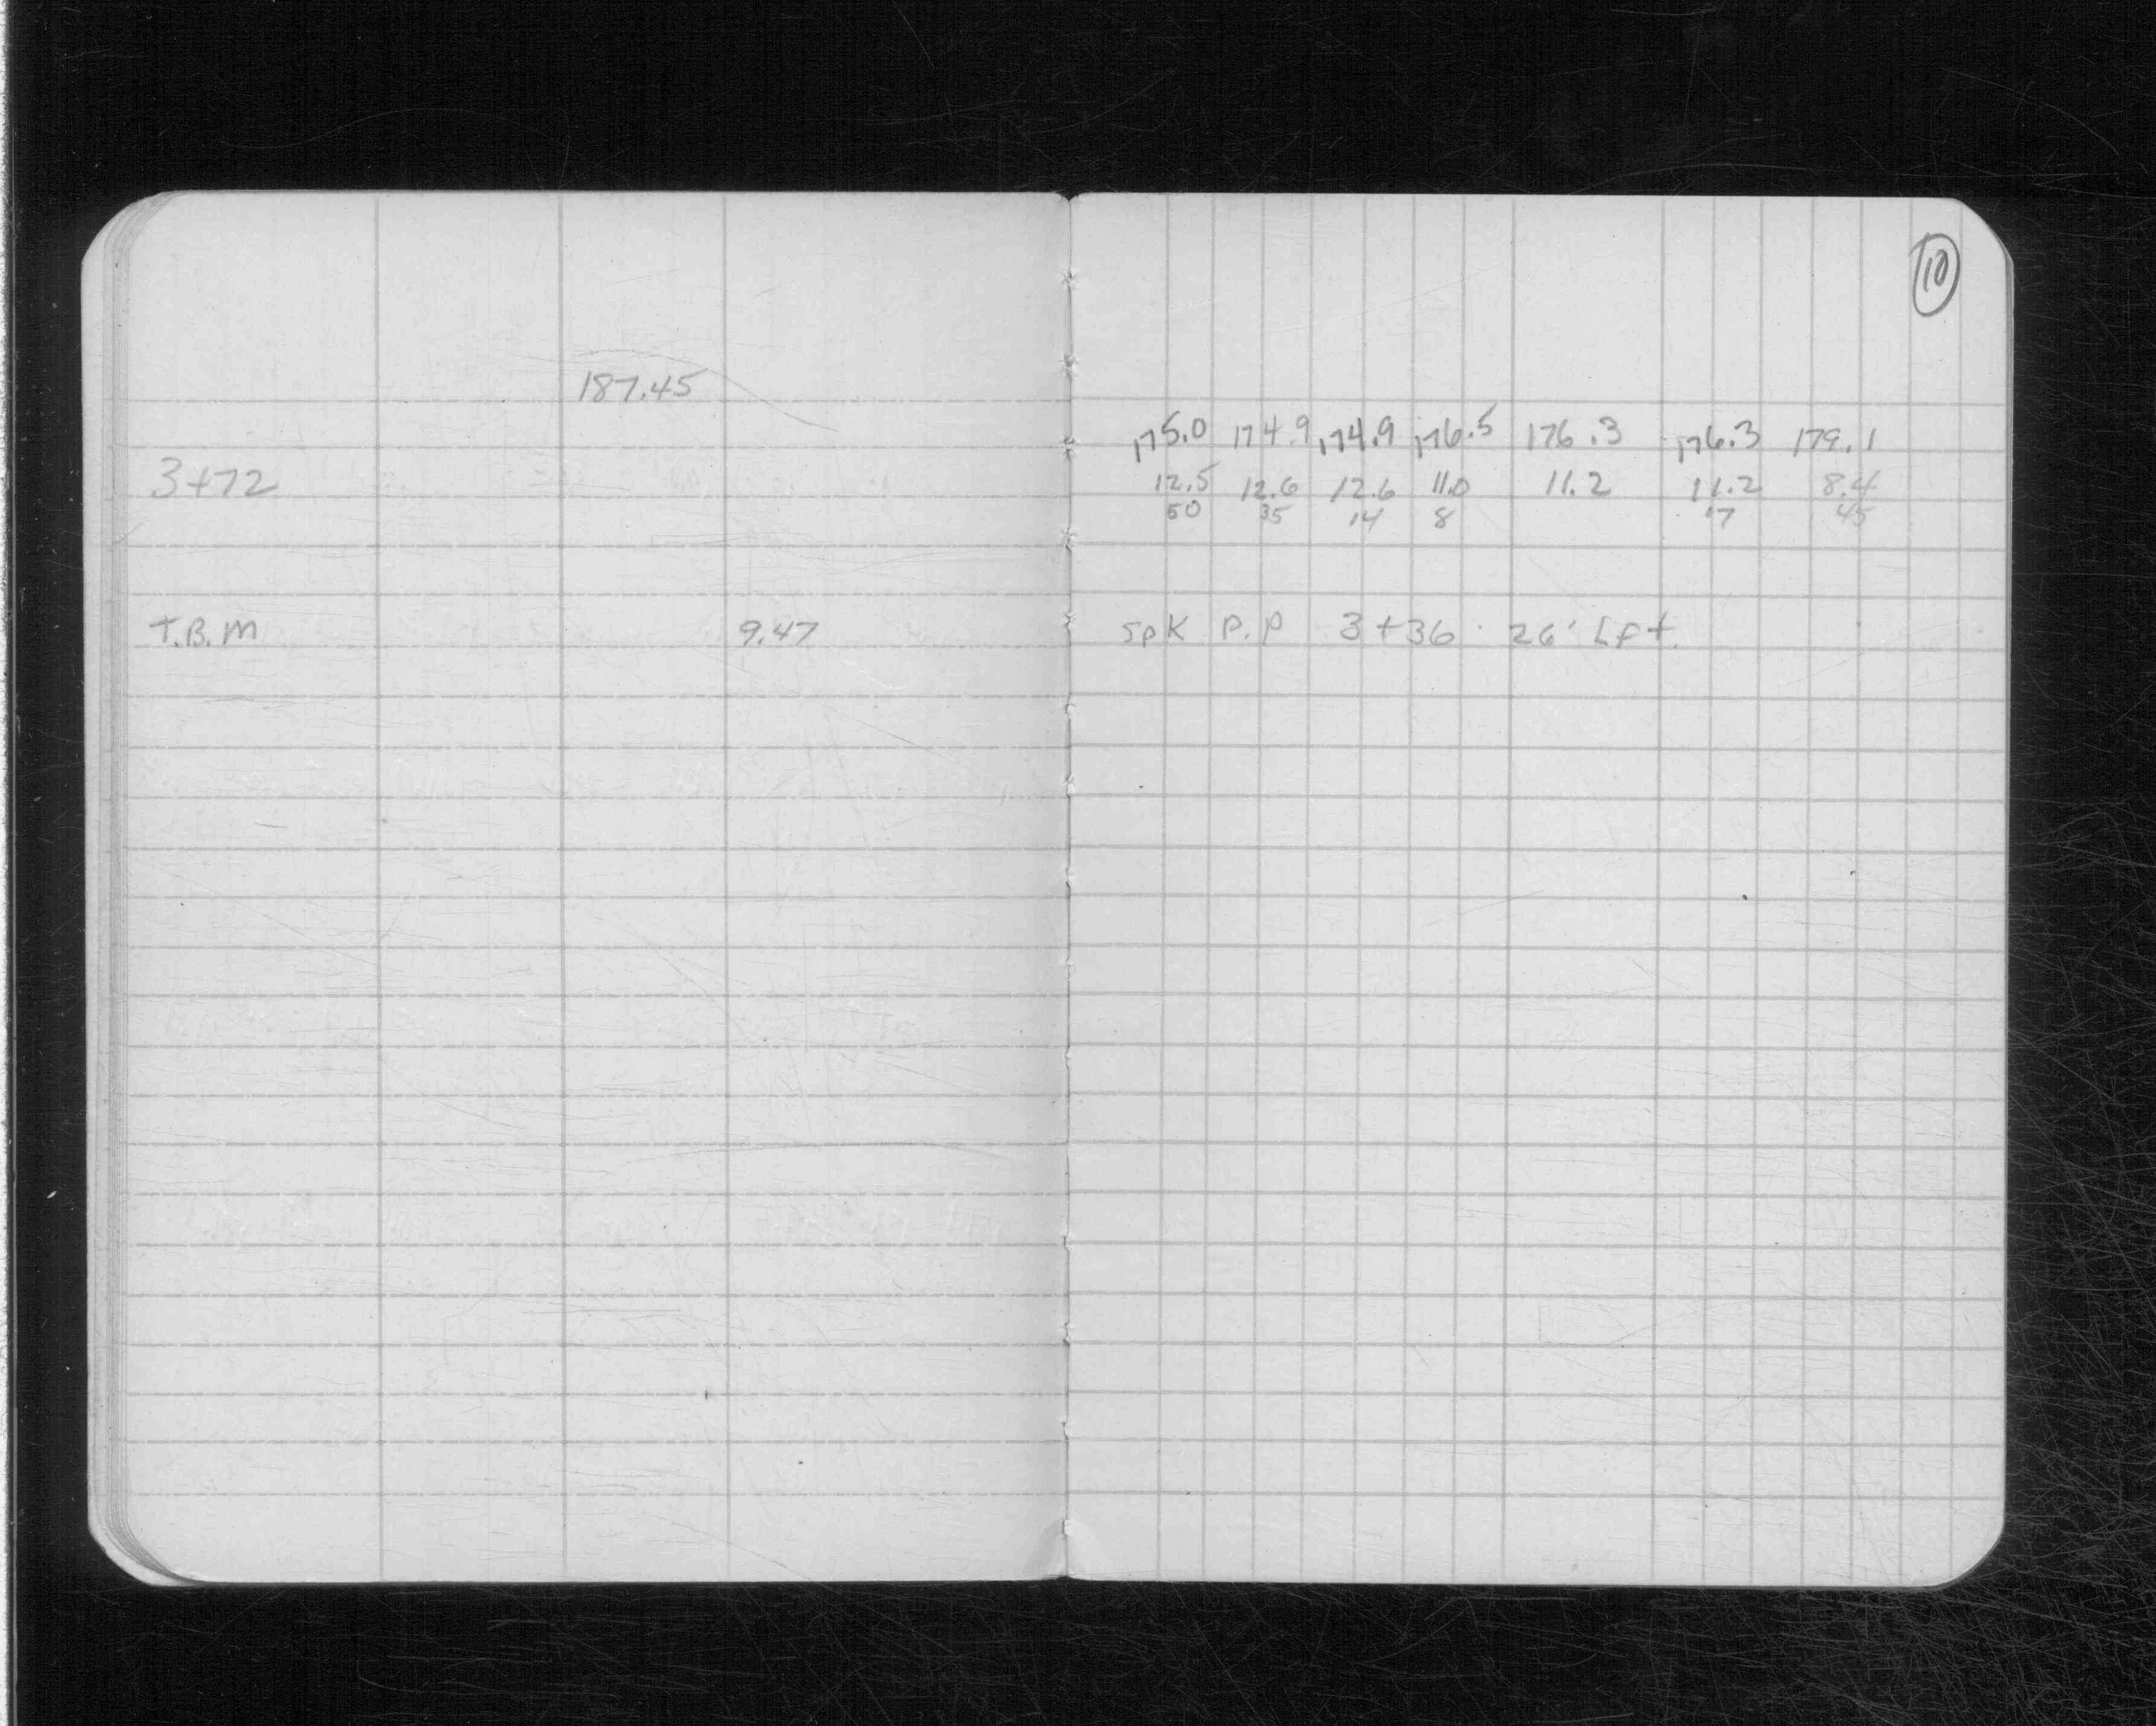 10
187.45
175.0 174.9 174.9 176.5 176.3 176.3 179.1
3+72 12.5 12.6 12.6 11.0 11.2 11.2 8.4
50 35 14 8 17 45
T.B.M 9.47 Spk P.P 3+36 26' Lft.